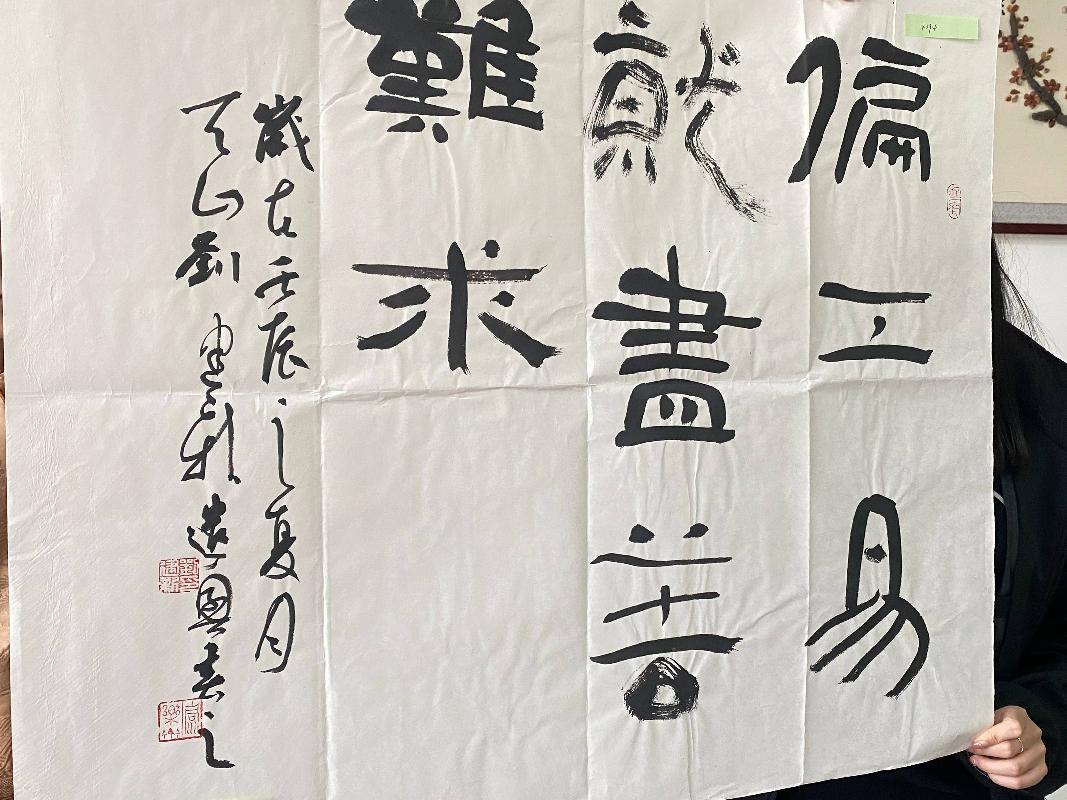 偏工易
就盡善
難求
歲在壬辰之夏月
天山劉建新遣興書之